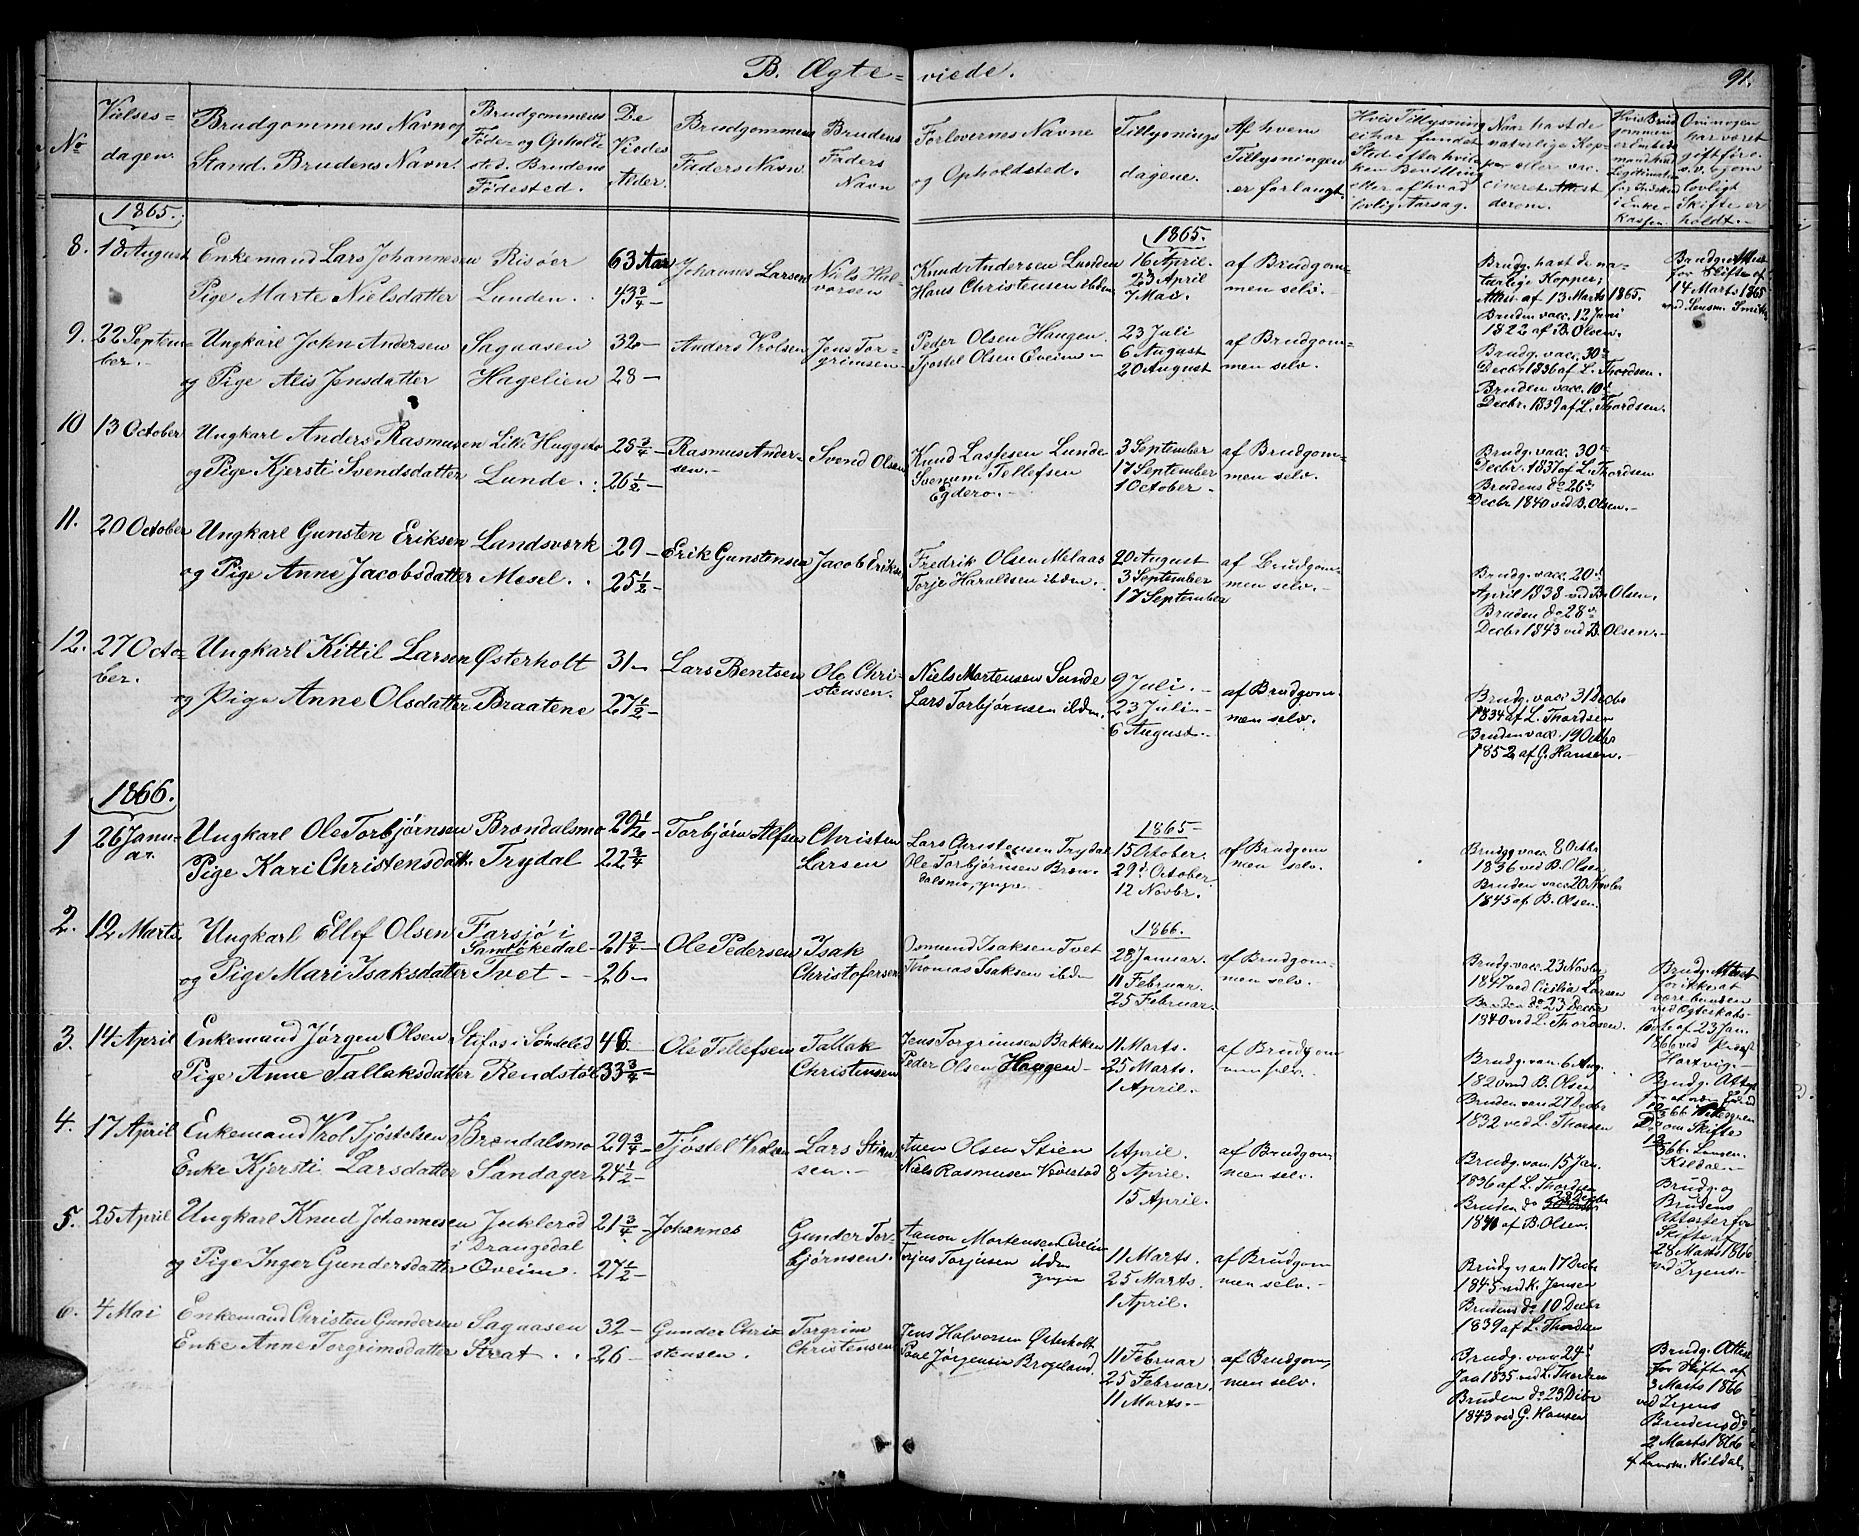 B. Ægte=viede.
91.
No
Vielses=
dagen.
Brudgommens Navn og
Stand. Brudens Navn.
Brudgommens
Føde- og Opholds
sted. Brudens
Fødested.
De
Viedes
Alder.
Brudgommens
Faders Navn.
Brudens
Faders
Navn
Forlovernes Navne
og Opholdsted.
Tillysnings
dagene.
Af hvem
Tillysningen
er forlangt.
Hvis Tillysning
ei har fundet
Sted efter hvil
ken Bevilling
eller af hvad
lovlig Aarsag.
Naar havt de
naturlige Kop-
per eller vac
cineret Attest
derom.
1865.
8.
18 August
Enkemand Lars Johannesen
Pige Marte Nielsdatter
Risøer
Lunden.
63 Aar
43 3/4 –
Johannes Larsen
Niels Hal-
vorsen
Knud Andersen Lunden
Hans Christensen ibden
1865.
16 April.
23 April
7 Mai.
af Brudgom=
men selv.–
Brudg. havt de na-
turlige Kopper;
Attest af 13 Marts 1865.
Bruden vacc. 12 Juni
1822 af B. Olsen.
Brudg. Attest
for Skifte af
14 Marts 1865
ved Lensm. Smith
9.
22 Septem=
ber.–
Ungkarl John Andersen
og Pige Alis Jensdatter
Sagaasen
Hagelien
32 –
28 –
Anders Vrolsen
Jens Tor-
grimsen–
Peder Olsen Haugen
Tjøstel Olsen Oveim –
23 Juli
6 August
20 August
af Brudgom=
men selv.
Brudg. vacc. 30te
Decbr. 1836 af L. Thordsen.
Bruden vacc. 10de
Decbr. 1839 af L. Thordsen.
10
13 October
Ungkarl Anders Rasmusen
og Pige Kjersti Svendsdatter
Lunde.
25 3/4 –
26 1/2 –
Rasmus Ander-
sen.–
Svend Olsen
Knud Lassesen Lunde
Svenum Tellefsen
Egdero.–
3 September
17 September
1 October.
af Brudgom-
men selv.
Brudg. vacc. 30te
Decbr. 1837 af L. Thordsen
Brudens do 26de
Decbr 1840 ved B. Olsen.–
11.
20 October
Ungkarl Gunsten Eriksen
og Pige Anne Jacobsdatter
Landsværk
Mesel.
29 –
25 1/2 –
Erik Gunstensen
Jacob Eriksen
Fredrik Olsen Melaas
Torje Haraldsen ibdn.
20 August
3 September
17 September
af Brudgom-
men selv.
Brudg. vacc. 20de
April 1838 ved B. Olsen.
Bruden do 28de
Decbr 1843 ved B. Olsen.–
12.
27 Octo=
ber.
Ungkarl Kittil Larsen
og Pige Anne Olsdatter
Østerholt
Braatene
31 –
27 1/2 –
Lars Bentsen
Ole Chri-
stensen.
Niels Mortensen Sunde
Lars Torbjørnsen ibden.
9 Juli.–
23 Juli.–
6 August.–
af Brudgom-
men selv.
Brudg. vacc 31 Decbr
1834 af L. Thordsen
Bruden vacc. 19 Octbr
1852 af G. Hansen.–
1866.
1
26 Janu-
ar.
Ungkarl Ole Torbjørnsen
Pige Kari Christensdatt.
Brændalsmo
Trydal
29 1/2 –
22 3/4
Torbjørn Alfsen
Christen
Larsen
Lars Christensen Trydal
Ole Torbjørnsen Bræn-
dalsmo, yngre
1865–
15 October.
29de October.
12 Novbr.
af Brudgom
men selv.
Brudg vacc. 8 Octbr
1836 ved B. Olsen
Bruden vacc 20 Novbr
1845 af B. Olsen.
2.
12 Marts
Ungkarl Ellef Olsen
og Pige Mari Isaksdatter
Farsjø i
Sandøkedal–
Tvet –
21 3/4 –
26 –
Ole Pedersen
Isak
Christofersen
Osmund Isaksen Tvet
Thomas Isaksen ibdn
1866.
28 Januar.
11 Februar.
25 Februar.
af Brudgom-
men selv.
Brudg. vacc. 23 Novbr
1847 ved Cicilia Larsen
Bruden do 23 Decbr
1840 ved L. Thordsen.
Brudg. Attest
for ikke at
være bunden
ved Ægteskabs-
løfte af 23 Jan.
1866 ved Provst
Hartvig.–
3.
14 April
Enkemand Jørgen Olsen
Pige Anne Tallaksdatter
Stifos i Søndeled
Rendstøl
46
33 3/4 –
Ole Tellefsen
Tallak
Christensen
Jens Torgrimsen Bakken
Peder Olsen Haugen –
11 Marts.
25 Marts.
1 April.
af Brudgom
men selv.
Brudg. vac. 6 Aug.
1820 ved B. Olsen
Bruden vac 27 Decbr
1832 ved L. Thorsen
4.
17 April
Enkemand Vrol Tjøstelsen
Enke Kjersti Larsdatter
Brændalsmo
Sandager
29 3/4 –
24 1/2 –
Tjøstel Vrolsen
Lars Stian
sen.–
Aven Olsen Stien
Niels Rasmusen Vedelstad
1 April.
8 April.
15 April.
af Brudgom
men selv.–
Brudg. vac. 15 Jan.
1836 af L. Thordsen
Bruden do 28 Decbr
1841 af B. Olsen.
Brudg. og
Brudens
Attester for
Skifte af
28 Marts 1866
ved Irgens.–
5.
25 April
Ungkarl Knud Johannesen
og Pige Inger Gundersdatter
Juklerød
i Drangedal
Oveim.
21 3/4 –
27 1/2 –
Johannes
Gunder Tor-
bjørnsen.
Aanon Mortensen Oveim
Torjus Torjusen ibden
yngre
11 Marts.
25 Marts.
1 April.
af Brudgom
men selv.–
Brudg vac 17 Decbr
1845 ved K. Jensen
Brudens do 10 Decbr
1839 af L. Thordsen
6.
4 Mai
Enkemand Christen Gundersen
Enke Anne Torgrimsdatter
Sagaasen
Strat.
32 –
26 –
Gunder Chri-
stensen.
Torgrim
Christensen
Jens Halvorsen Østerholt
Povel Jørgensen Brogeland
11 Februar
25 Februar.
11 Marts.–
af Brudgom,
men selv.–
Brudg. vac 24de
Jan 1835 ved L. Thordsen
Bruden do 23 Decbr
1843 ved G. Hansen
Brudg. Attest
for Skifte af
3 Marts 1866
ved Irgens
Brudens do
2 Marts 1866
af Lensm. Kildal.